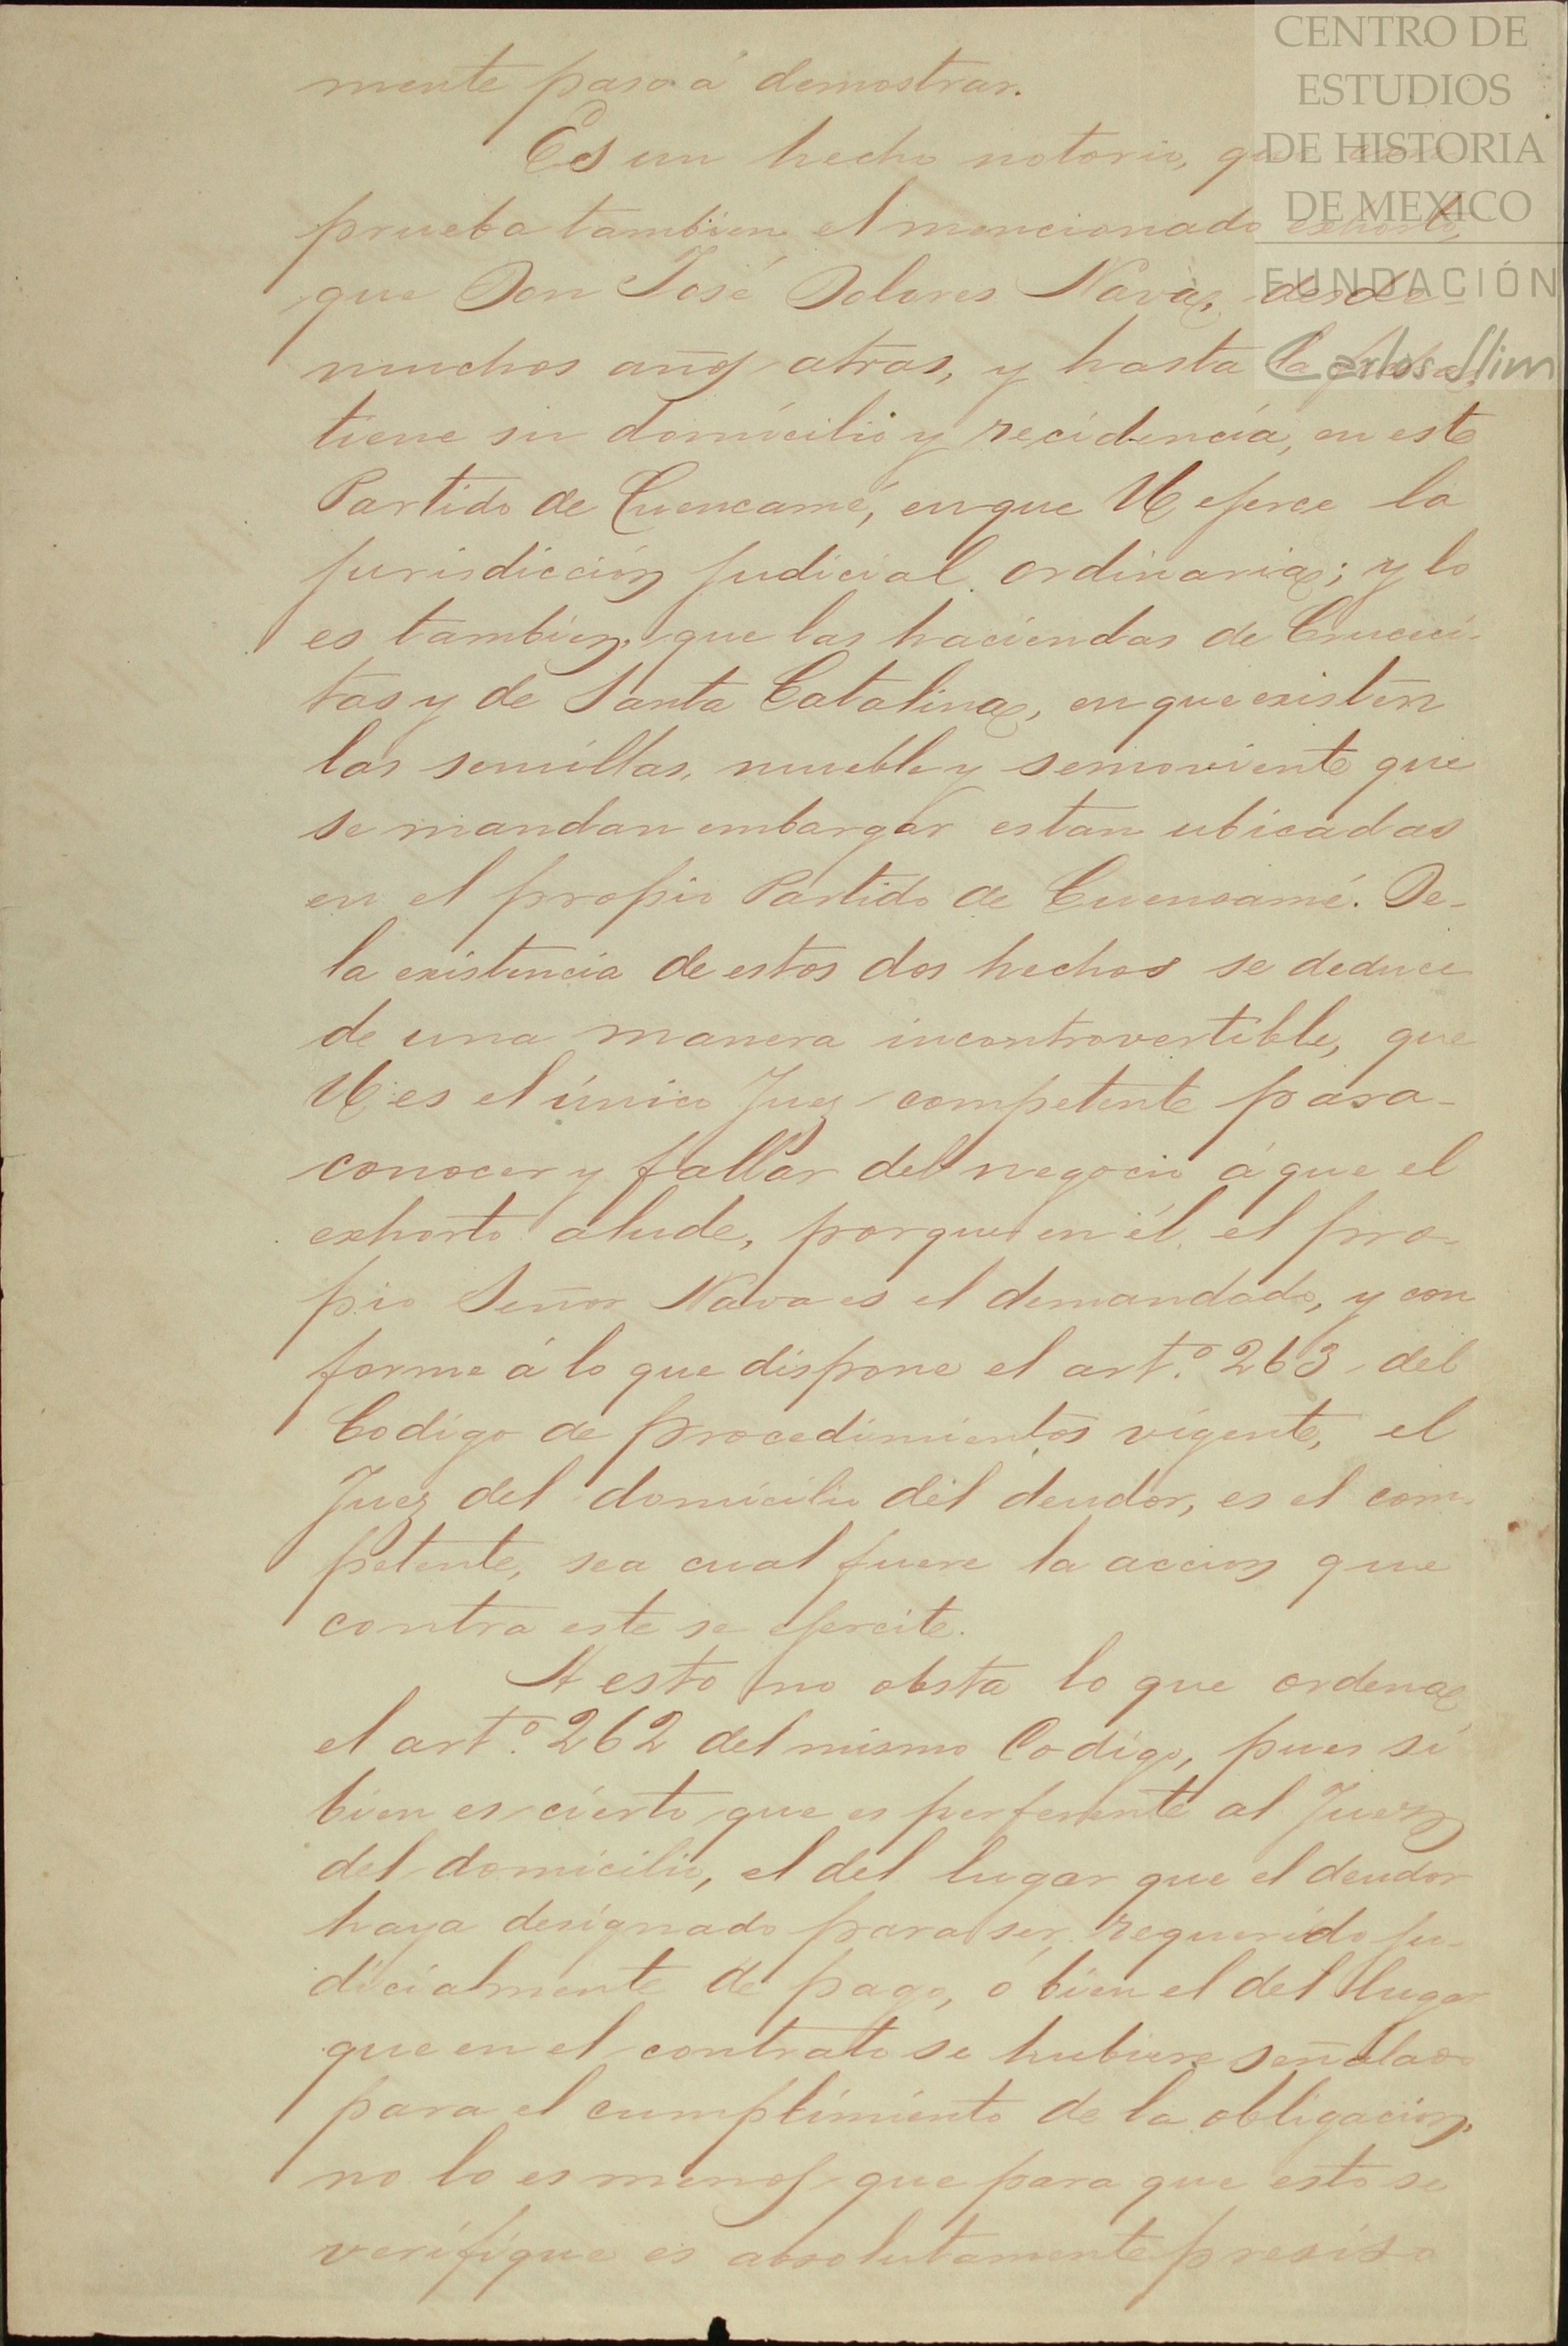 CENTRO DE
ESTUDIOS
DE HISTORIA
DE MEXICO
FUNDACIÓN
Carlos Slim
mente paso á demostrar.
Es un hecho notorio, que
prueba tambien el mencionado exhorto,
que Don José Dolores Nava, desde
muchos años atras, y hasta la fecha,
tiene su domicilio y recidencia, en este
Partido de Cuencamé, en que U. ejerce la
jurisdiccion judicial ordinaria; y lo
es tambien, que las haciendas de Cruceci-
tas y de Santa Catalina, en que existen
las semillas, mueble y semoviente que
se mandan embargar estan ubicadas
en el propio Partido de Cuencamé. De-
la existencia de estos dos hechos se deduce
de una manera incontrovertible, que
U. es el único Juez competente para-
conocer y fallar del negocio á que el
exhorto alude, porque en él, el pro-
pio Señor Nava es el demandado, y con
forme á lo que dispone el artº. 263 del
Codigo de procedimientos vigente, el
Juez del domicilio del deudor, es el com-
petente, sea cual fuere la accion que
contra este se ejercite.
A esto no obsta lo que ordena
el artº. 262 del mismo Codigo, pues si
bien es cierto que es perferente al Juez
del domicilio, el del lugar que el deudor
haya designado para ser requerido ju-
dicialmente de pago, ó bien el del lugar
que en el contrato se hubiere señalado
para el cumplimiento de la obligacion,
no lo es menos que para que esto se
verifique es absolutamente preciso